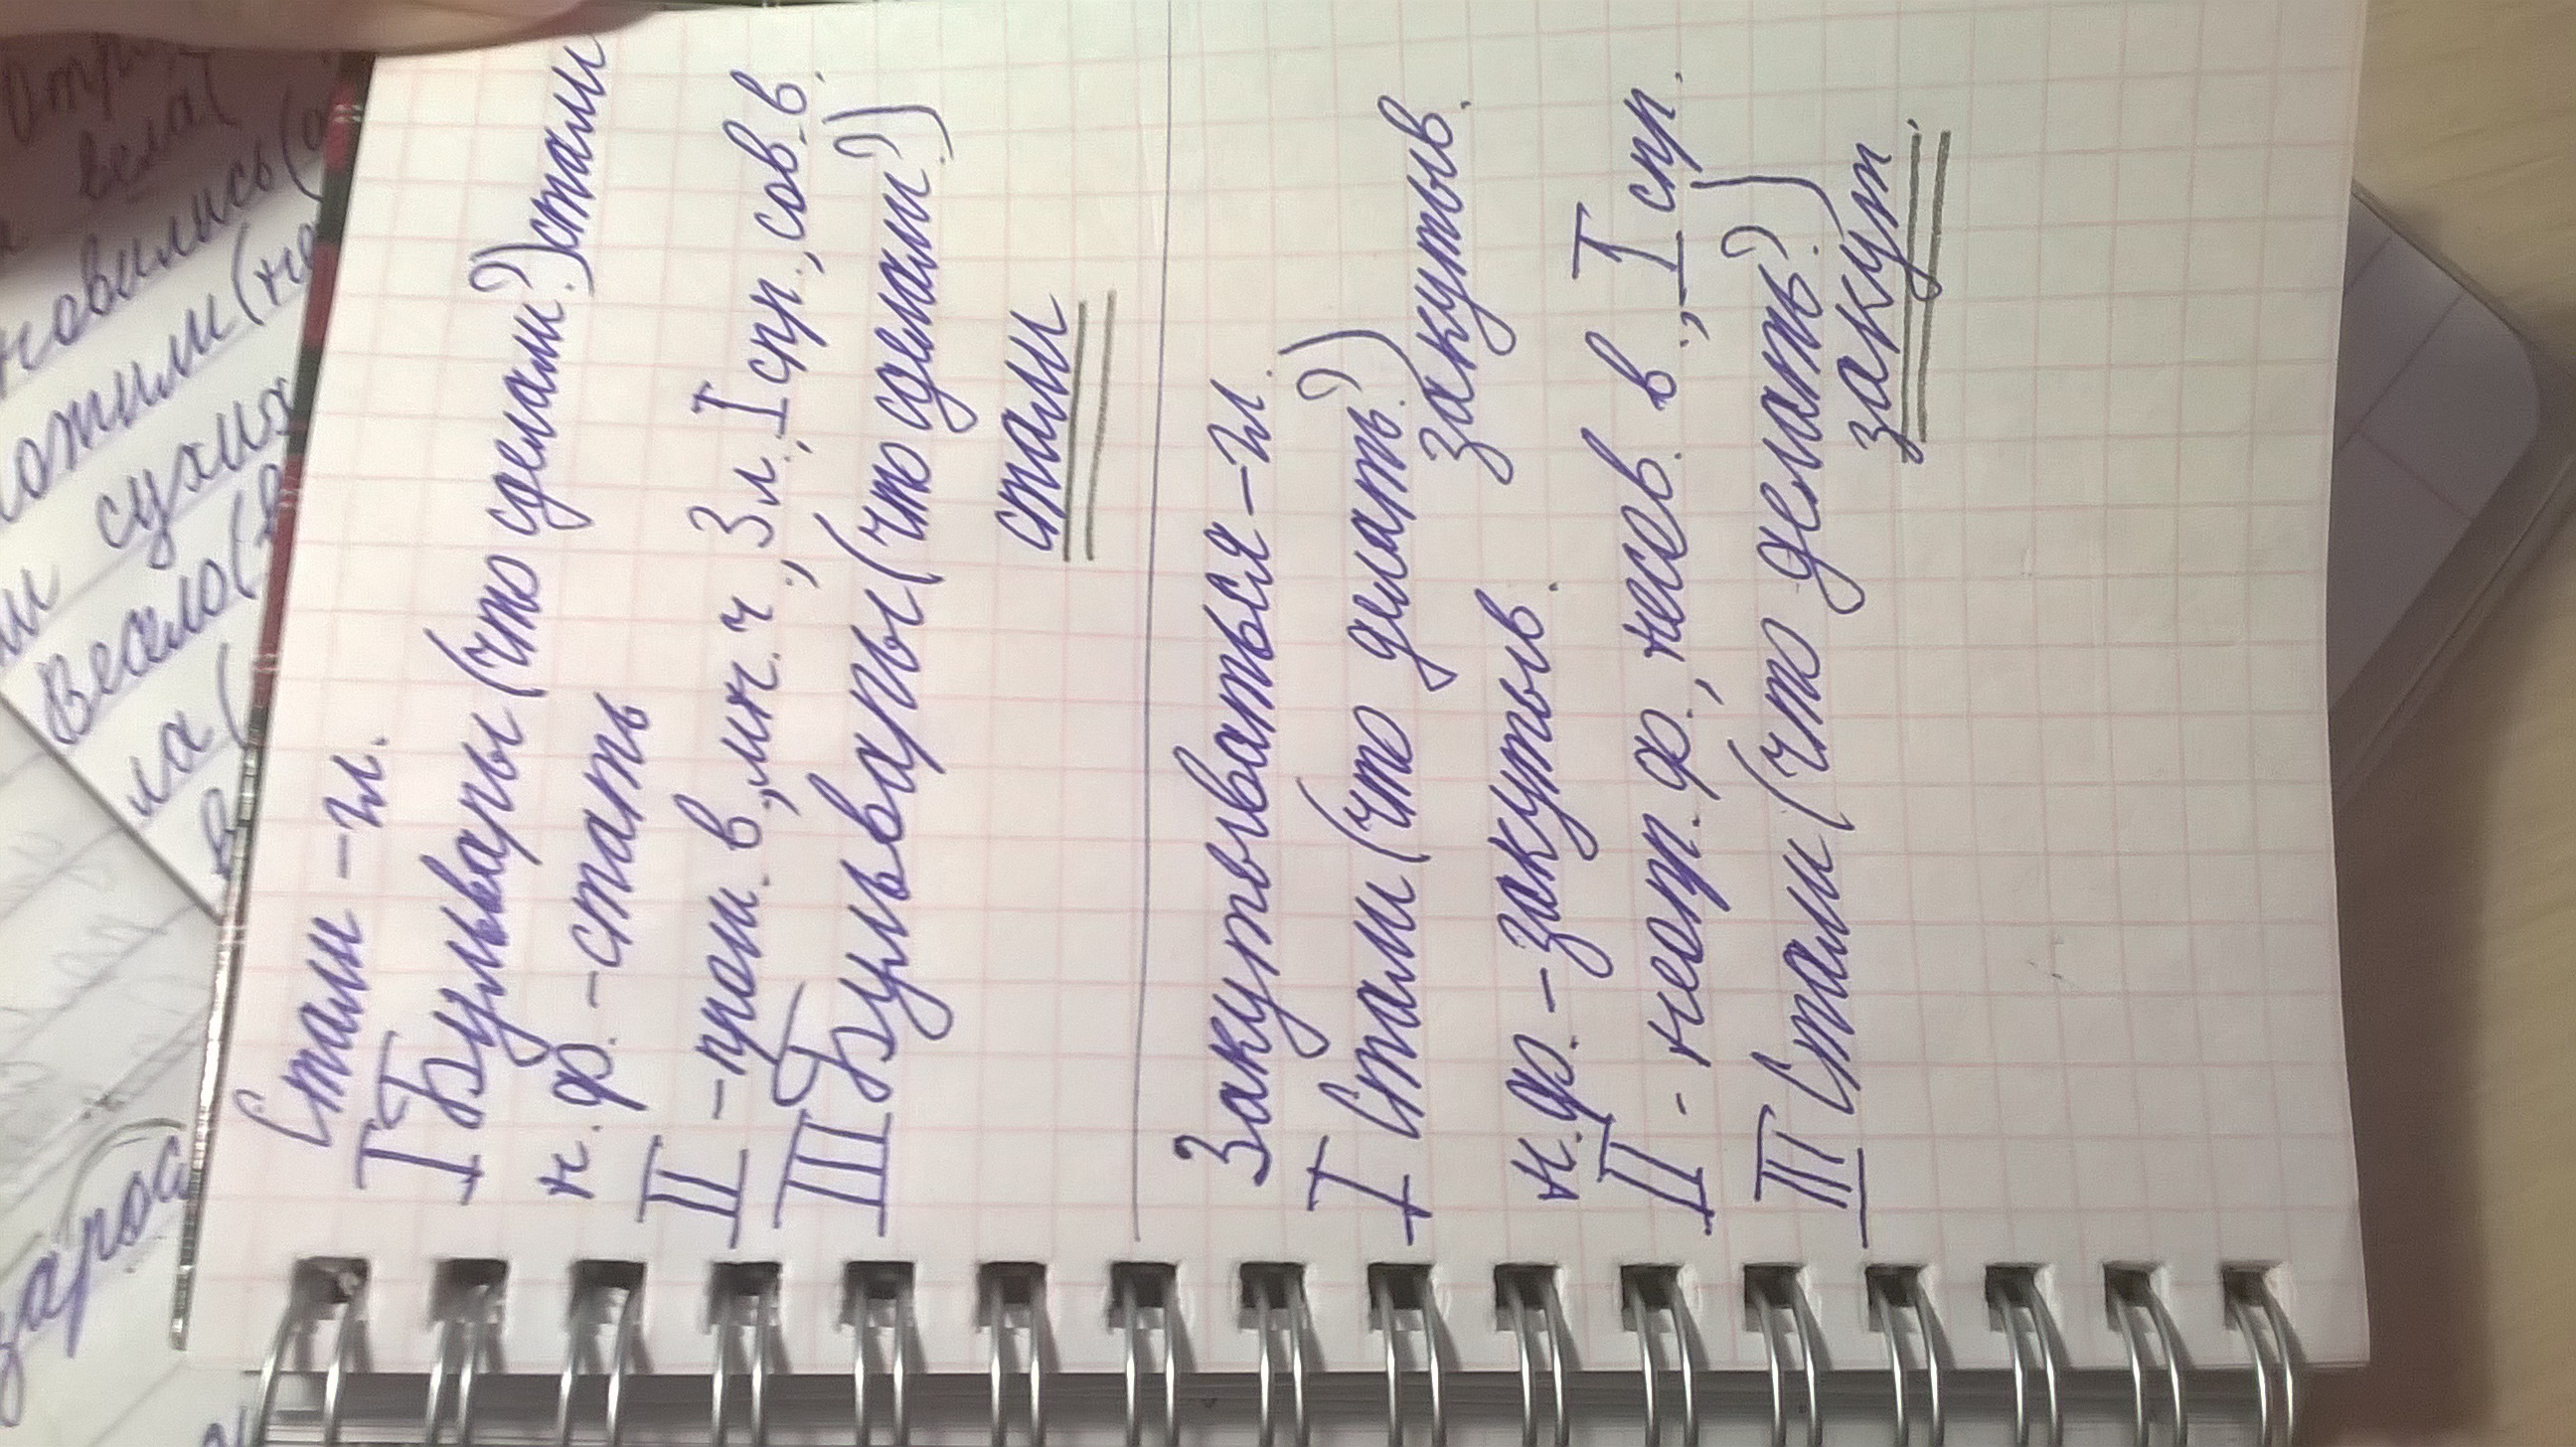 Стали – гл.
I Бульвары (что сделали?) стали
н. ф. – стать
II – прош. в., мн. ч., 3 л., I спр., сов. в.
III Бульвары (что сделали?)
стали
Закутываться – гл.
I Стали (что делать?)
закутыв.
н. ф. – закутыв.
II – неопр. ф., несов. в., I спр.
III Стали (что делать?)
закут.
вела(
новились(
сухих
Весело(
ла(